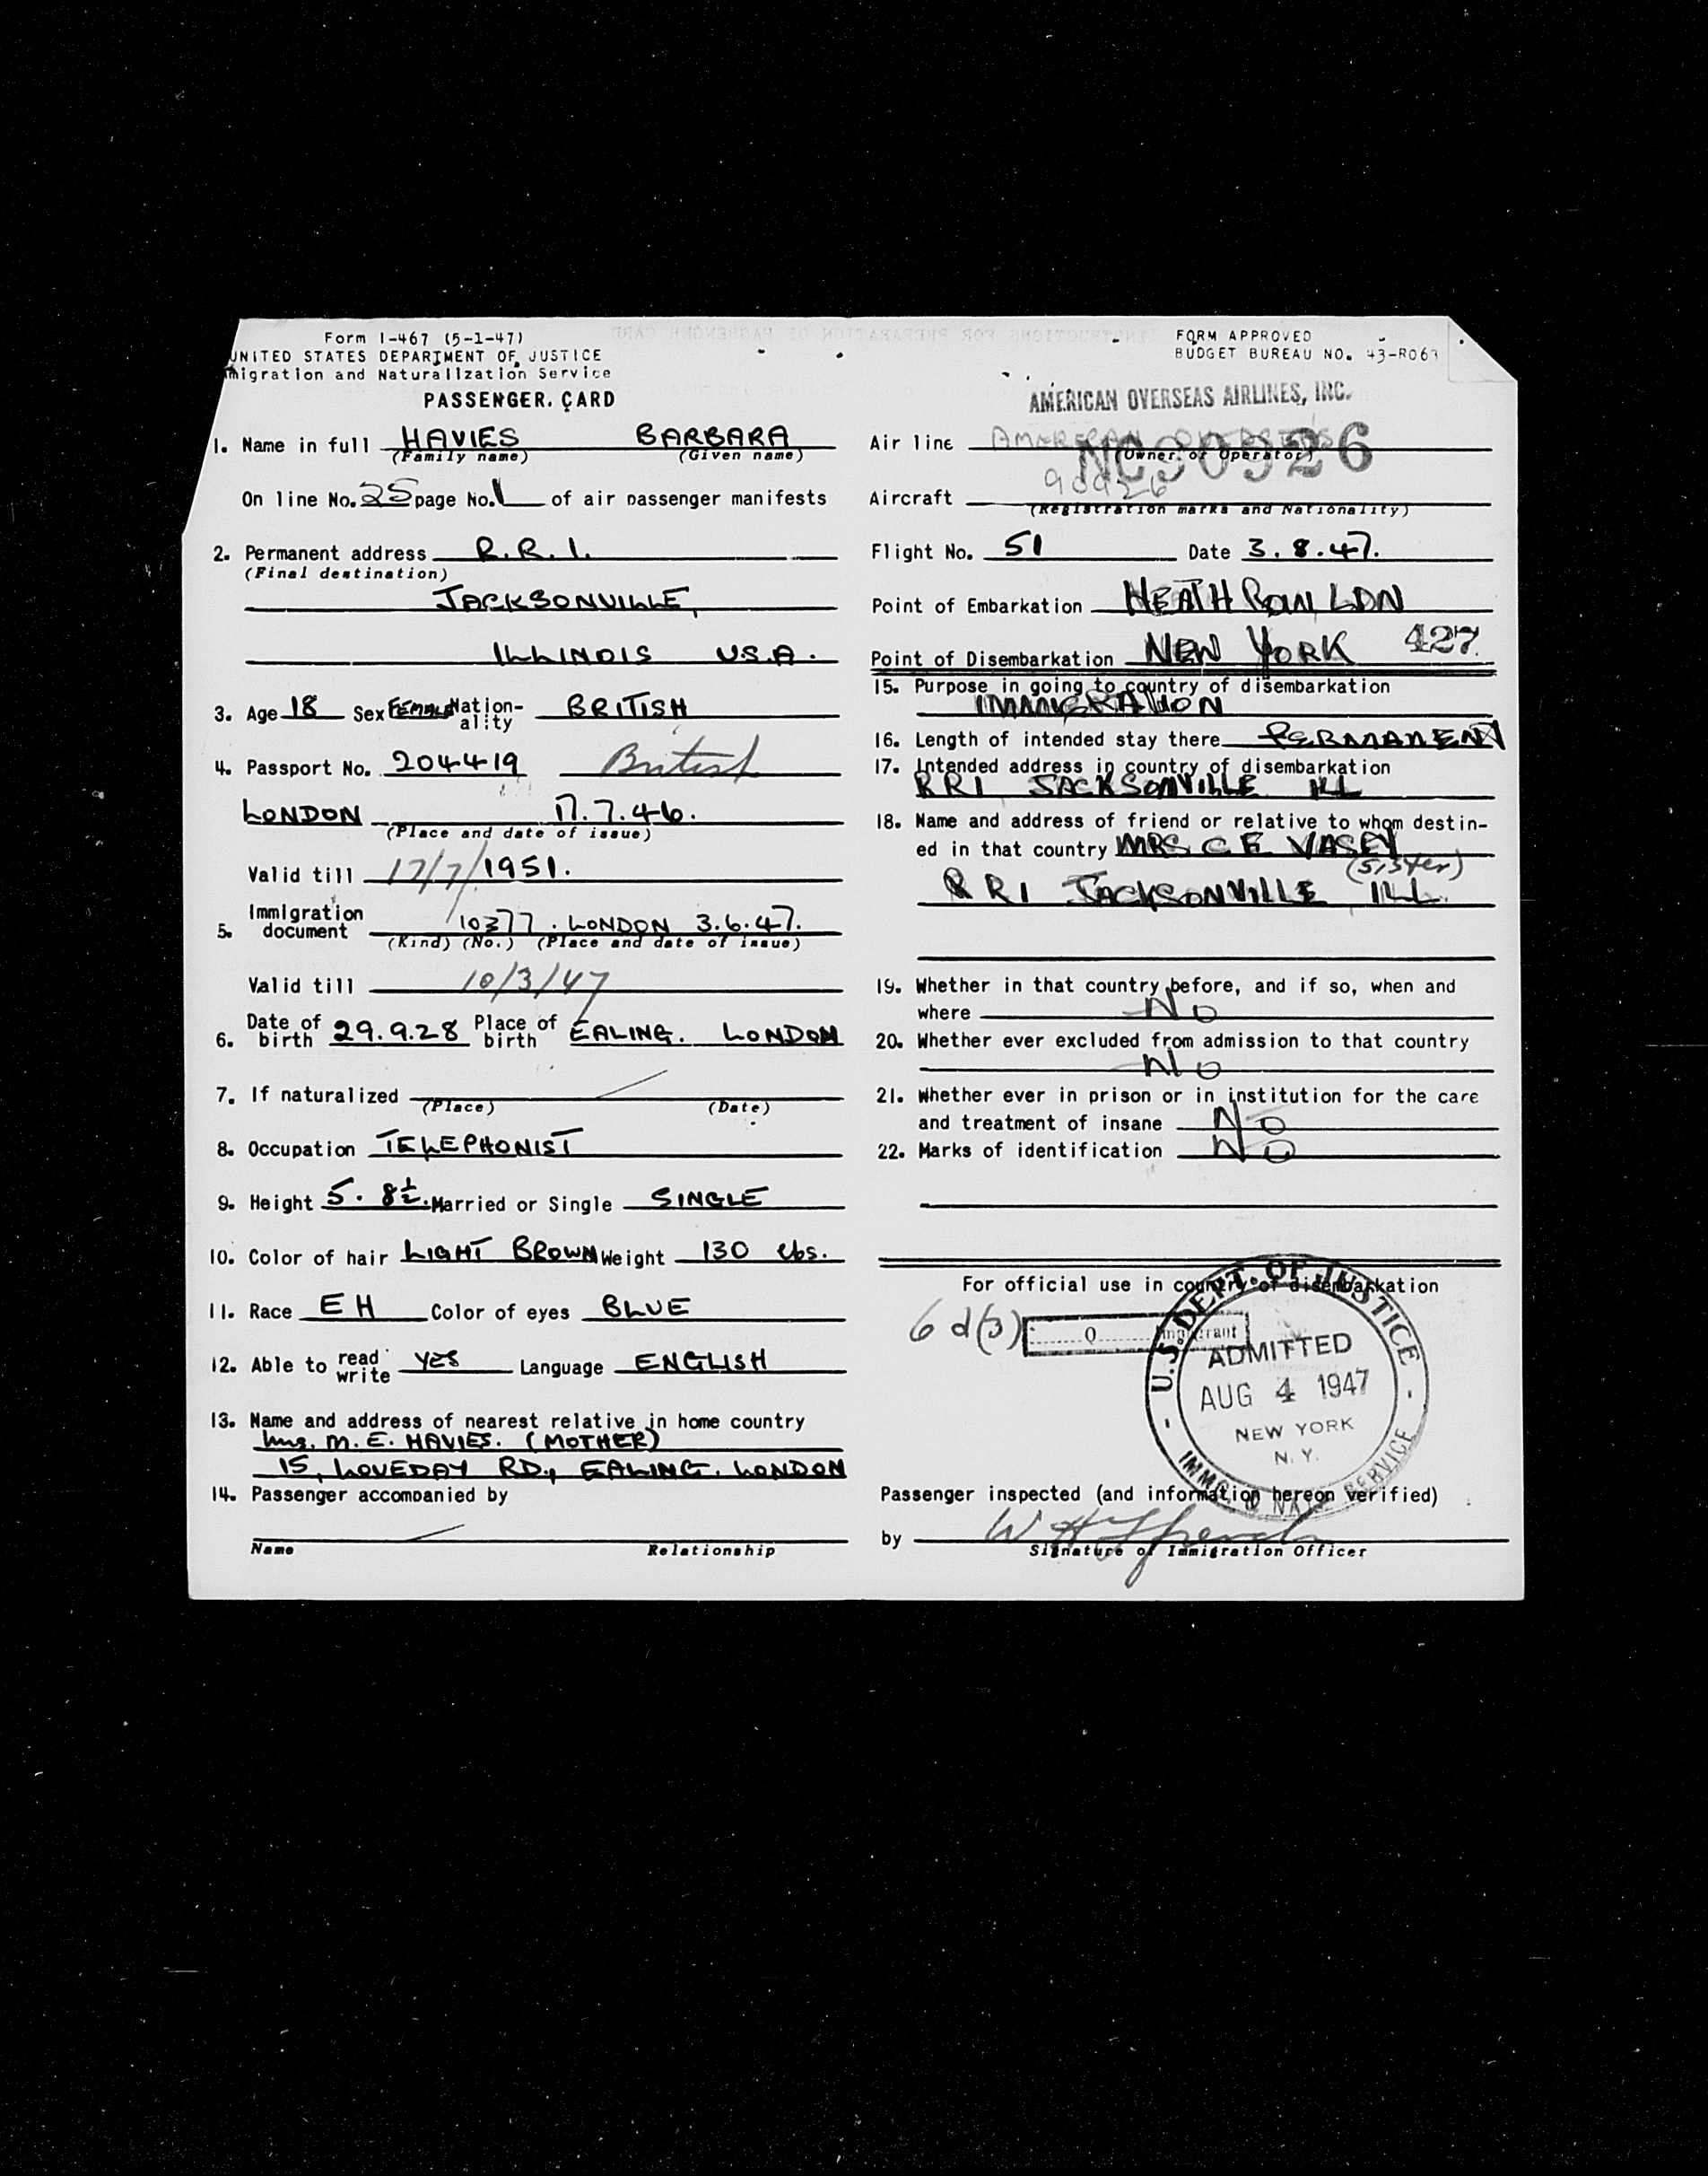 Form I-467 (5-1-47)
UNITED STATES DEPARTMENT OF JUSTICE
migration and Naturalization Service
PASSENGER CARD
1. Name in full HAVIES BARBARA
(Family name) (Given name)
On line No. 25 page No. 1 of air passenger manifests
2. Permanent address R.R.1.
(Final destination)
JACKSONVILLE,
ILLINOIS U.S.A.
3. Age 18 Sex FEMALE Nation-ality BRITISH
4. Passport No. 204419 British
LONDON 17.7.46.
(Place and date of issue)
Valid till 17/7/1951.
5. Immigration document 10377. LONDON 3.6.47.
(Kind) (No.) (Place and date of issue)
Valid till 10/3/47
6. Date of birth 29.9.28 Place of birth EALING. LONDON
7. If naturalized
(Place) (Date)
8. Occupation TELEPHONIST
9. Height 5. 8½. Married or Single SINGLE
10. Color of hair LIGHT BROWN Weight 130 lbs.
11. Race EH Color of eyes BLUE
12. Able to read write YES Language ENGLISH
13. Name and address of nearest relative in home country
Mrs. M. E. HAVIES. (MOTHER)
15, LOVEDAY RD., EALING. LONDON
14. Passenger accompanied by
Name Relationship
FORM APPROVED
BUDGET BUREAU NO. 43-R063
AMERICAN OVERSEAS AIRLINES, INC.
Air line AMERICAN OVERSEAS
(Owner or Operator)
NC90926
Aircraft 90926
(Registration marks and Nationality)
Flight No. 51 Date 3.8.47.
Point of Embarkation HEATH ROW LDN
Point of Disembarkation NEW YORK 427
15. Purpose in going to country of disembarkation
IMMIGRATION
16. Length of intended stay there PERMANENT
17. Intended address in country of disembarkation
RR1 JACKSONVILLE ILL
18. Name and address of friend or relative to whom destin-
ed in that country MRS C E VASEY
(sister)
RR1 JACKSONVILLE ILL.
19. Whether in that country before, and if so, when and
where No
20. Whether ever excluded from admission to that country
No
21. Whether ever in prison or in institution for the care
and treatment of insane No
22. Marks of identification No
For official use in country of disembarkation
6 d(3) Q Immigrant
U.S. DEPT. OF JUSTICE
ADMITTED
AUG 4 1947
NEW YORK
N.Y.
IMMG. & NATZ. SERVICE
Passenger inspected (and information hereon verified)
by
Signature of Immigration Officer